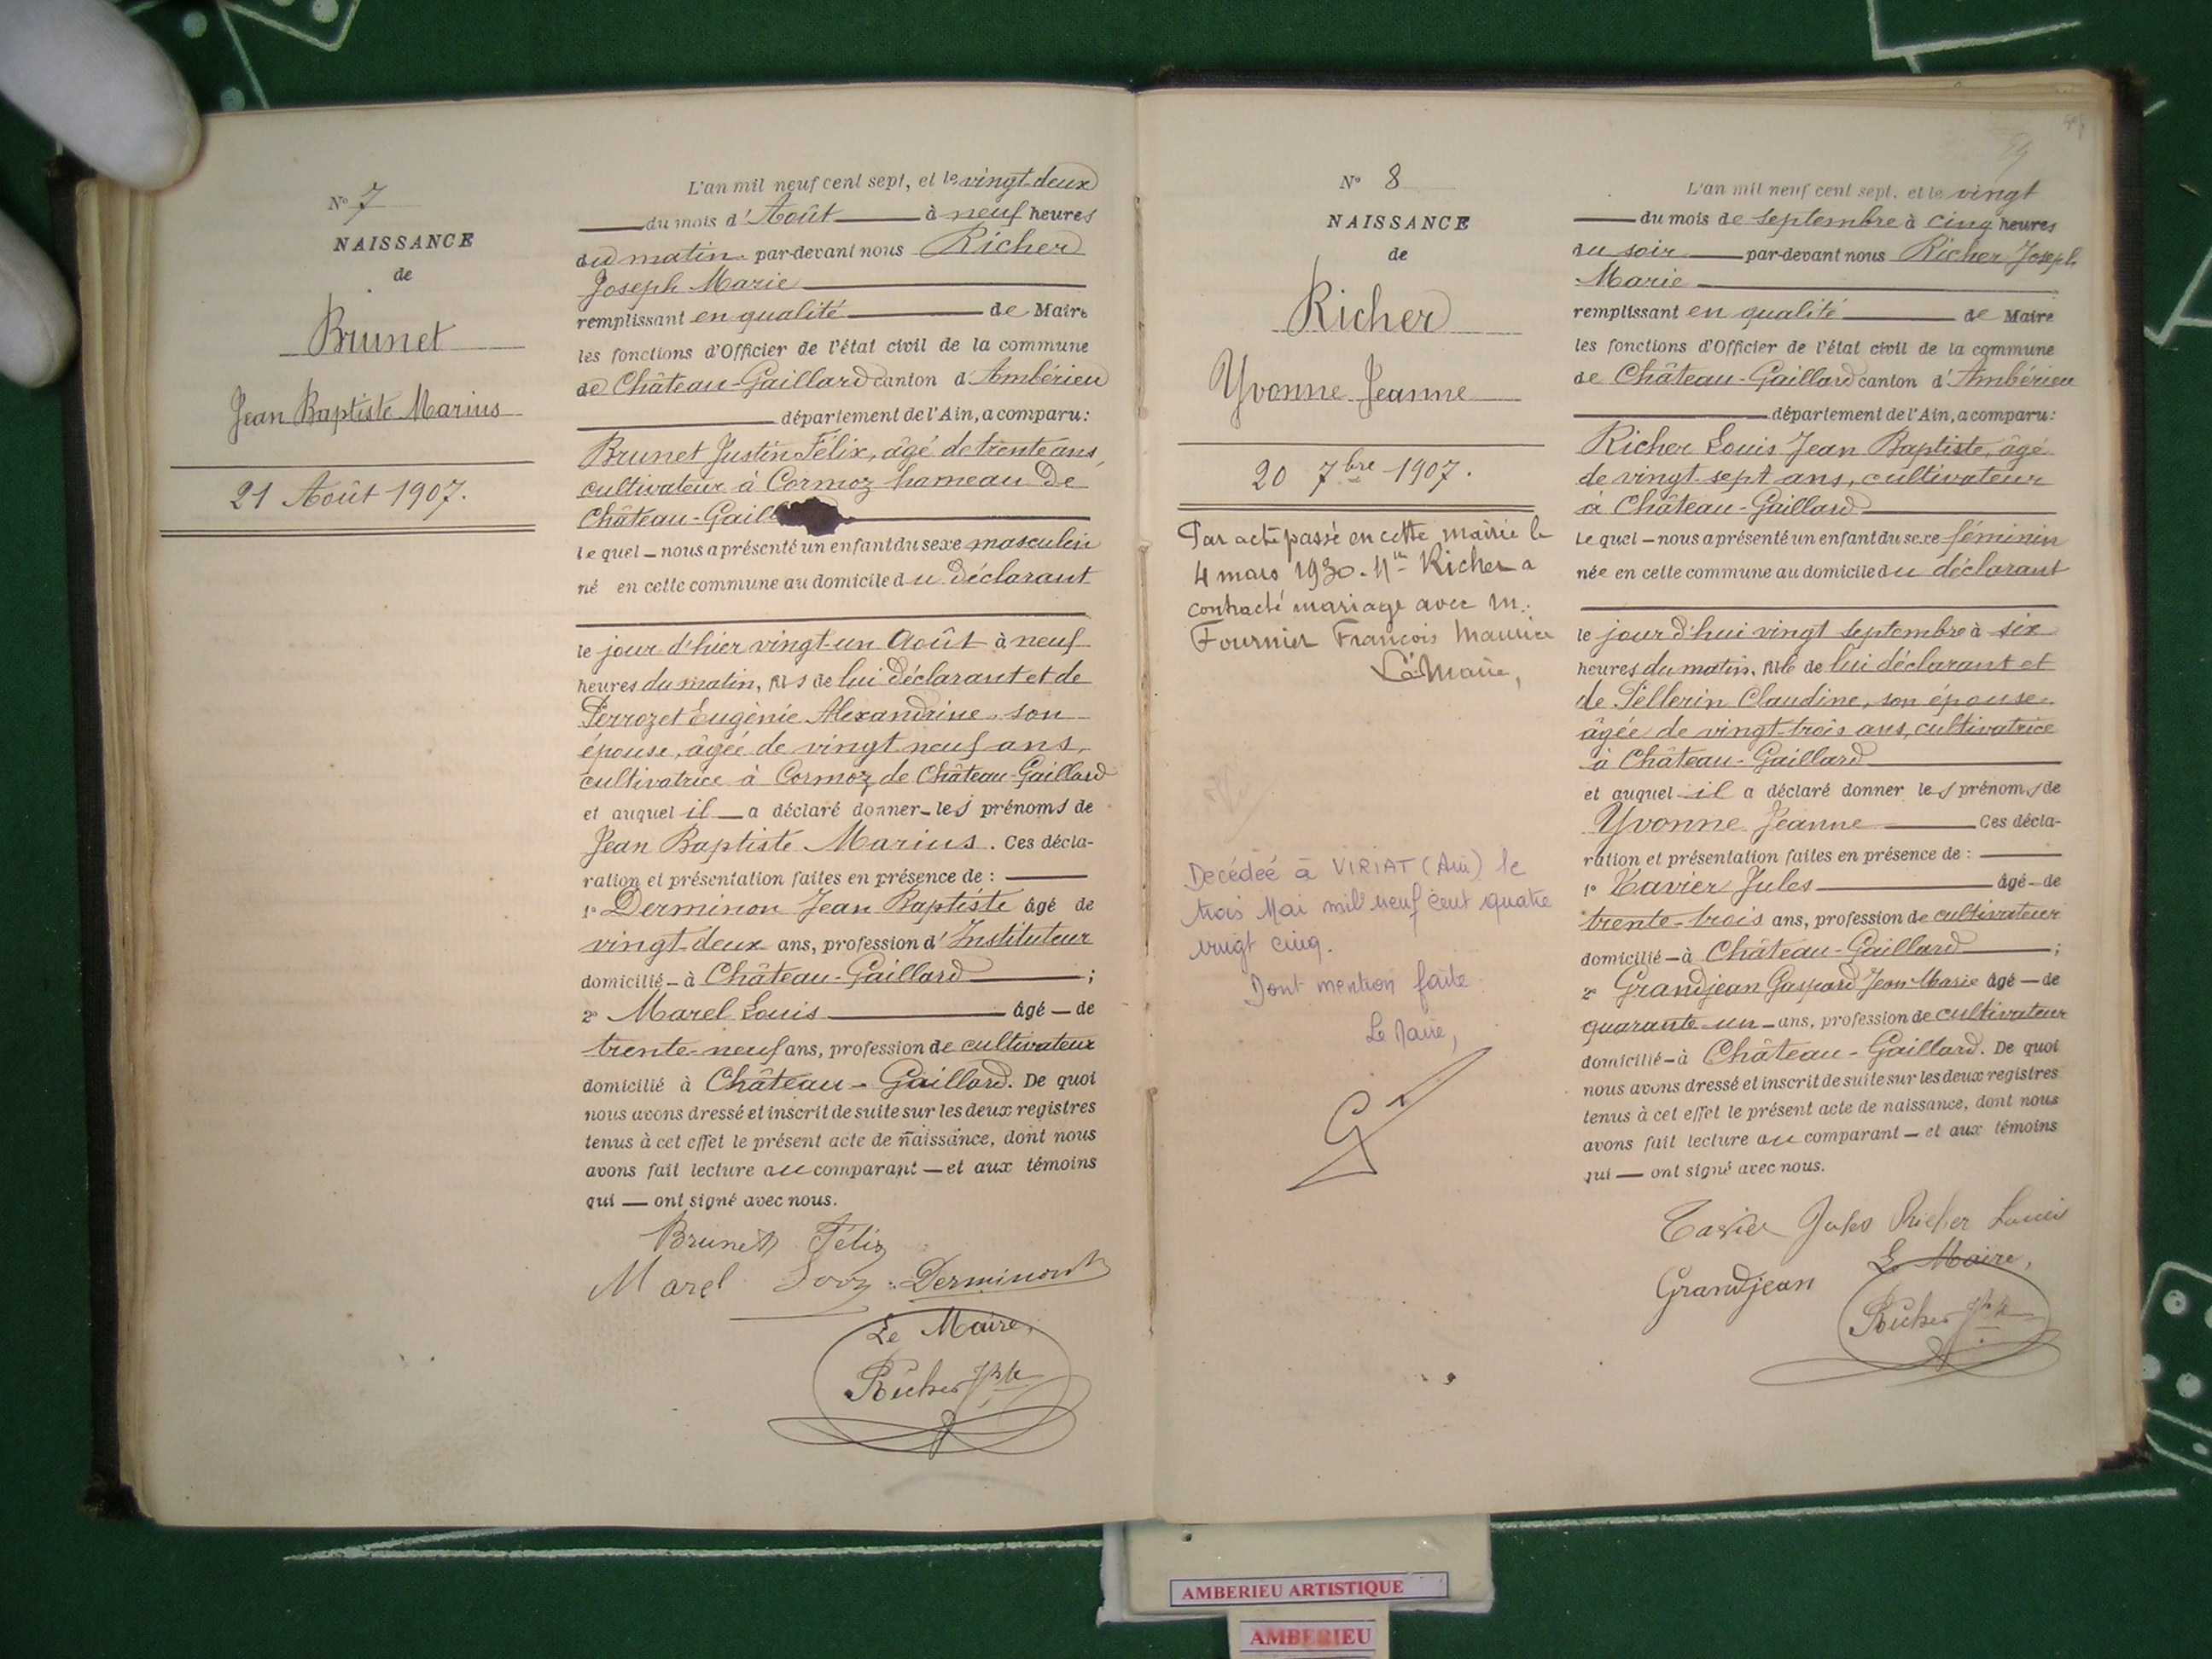 N° 7
NAISSANCE
de
Brunet
Jean Baptiste Marius
21 Août 1907.
L'an mil neuf cent sept, et le vingt-deux
du mois d'Août à neuf heures
du matin par-devant nous Richer
Joseph Marie
remplissant en qualité de Maire
les fonctions d'Officier de l'état civil de la commune
de Château-Gaillard canton d'Ambérieu
département de l'Ain, a comparu:
Brunet Justin Félix, âgé de trente ans,
cultivateur à Cormoz hameau de
Château-Gaill
le quel – nous a présenté un enfant du sexe masculin
né en cette commune au domicile du déclarant
le jour d'hier vingt-un Août à neuf
heures du matin, fils de lui déclarant et de
Perrozet Eugènie Alexandrine, son
épouse, âgée de vingt neuf ans,
cultivatrice à Cormoz de Château-Gaillard
et auquel il a déclaré donner les prénoms de
Jean Baptiste Marius. Ces décla-
ration et présentation faites en présence de :
1° Derminon Jean Baptiste âgé de
vingt-deux ans, profession d'Instituteur
domicilié à Château-Gaillard ;
2° Marel Louis âgé de
trente-neuf ans, profession de cultivateur
domicilié à Château-Gaillard. De quoi
nous avons dressé et inscrit de suite sur les deux registres
tenus à cet effet le présent acte de naissance, dont nous
avons fait lecture au comparant – et aux témoins
qui – ont signé avec nous.
Brunet Félix
Marel Derminon
Le Maire,
Richer
N° 8
NAISSANCE
de
Richer
Yvonne Jeanne
20 7bre 1907.
Par acte passé en cette mairie le
4 mars 1930. Mlle Richer a
contracté mariage avec M.
Fournier François Maurice
Le Maire,
Decédée à VIRIAT (Ain) le
trois Mai mil neuf cent quatre
vingt cinq.
Dont mention faite
Le Maire,
L'an mil neuf cent sept, et le vingt
du mois de septembre à cinq heures
du soir par-devant nous Richer Joseph
Marie
remplissant en qualité de Maire
les fonctions d'Officier de l'état civil de la commune
de Château-Gaillard canton d'Ambérieu
département de l'Ain, a comparu:
Richer Louis Jean Baptiste, âgé
de vingt-sept ans, cultivateur
à Château-Gaillard
le quel – nous a présenté un enfant du sexe féminin
née en cette commune au domicile du déclarant
le jour d'hui vingt septembre à six
heures du matin, fille de lui déclarant et
de Pellerin Claudine, son épouse
âgée de vingt-trois ans, cultivatrice
à Château-Gaillard
et auquel il a déclaré donner les prénoms de
Yvonne Jeanne Ces décla-
ration et présentation faites en présence de :
1° Tavier Jules âgé de
trente-trois ans, profession de cultivateur
domicilié à Château-Gaillard ;
2° Grandjean Gaspard Jean-Marie âgé de
quarante-un ans, profession de cultivateur
domicilié à Château-Gaillard. De quoi
nous avons dressé et inscrit de suite sur les deux registres
tenus à cet effet le présent acte de naissance, dont nous
avons fait lecture au comparant – et aux témoins
qui – ont signé avec nous.
Tavier Jules Richer Louis
Le Maire,
Grandjean
Richer
AMBERIEU ARTISTIQUE
AMBERIEU